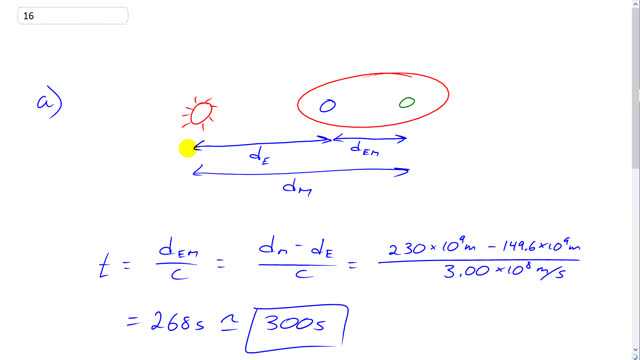 16
a)
d_E
d_EM
d_M
t = d_EM / c = (d_M - d_E) / c = (230 × 10⁹ m - 149.6 × 10⁹ m) / (3.00 × 10⁸ m/s)
= 268s ≃ 300s